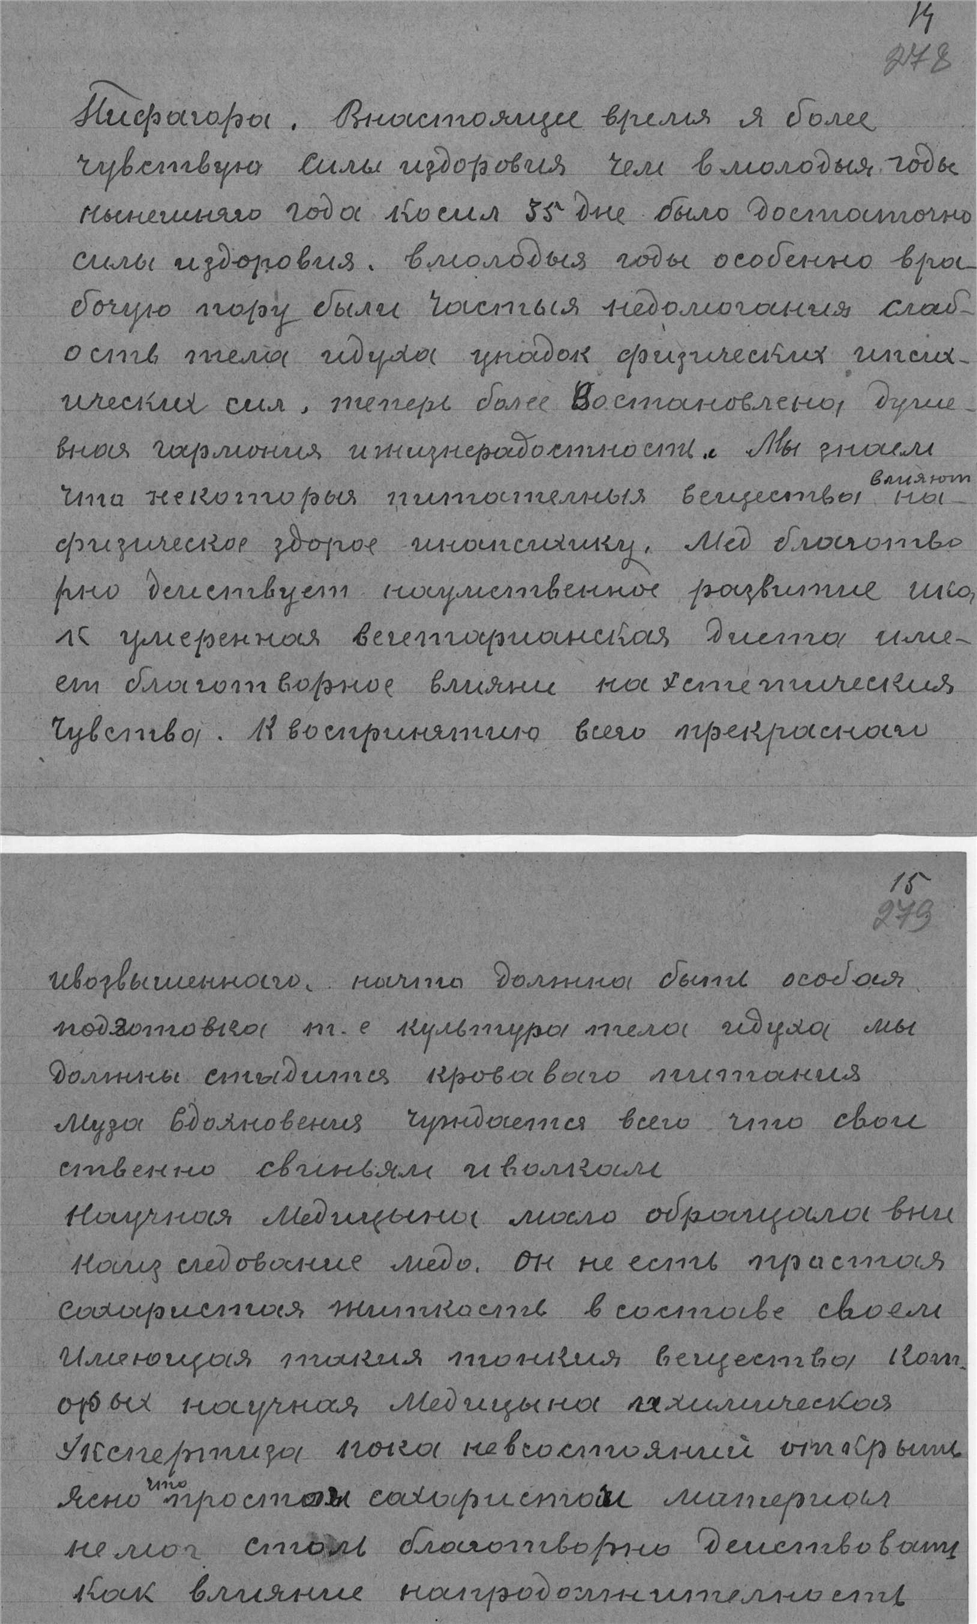 14
278
Пифагора. Внастоящее время я более
чувствую силы издоровия чем вмолодыя годы
нынешняго года косил 35 дне было достаточно
силы издоровия. вмолодыя годы особенно вра-
бочую пору были частыя недомогания слаб-
ость тела идуха упадок физических ипсих-
ических сил, теперь более Востановлена, душе-
вная гармония ижизнерадостность. Мы знаем
что некоторыя питателныя вещества влияют на-
физическое здорое инапсихику. Мед благотво
рно деиствует наумственное развитие ика,
к умеренная вегетарианская диета име-
ет благотворное влияни на эстетическия
Чувства. К воспринятию всего прекраснаго
15
279
ивозвышеннаго. начто должна быть особая
подготовка т.е культура тела идуха мы
должны стыдится кроваваго питания
Муза вдохновения чуждается всего что свои
ственно свиньям иволкам
Научная Медицына мало обращала вни
Наизследование медо. Он не есть простая
сахаристая житкость в составе своем
Имеющая такия тонкия вещества Кот-
орых научная Медицына ихимическая
Экспертиза пока невсостояний открыть
Ясно что простои сахаристои материал
немог столь благотворно деиствовать
Как влияние напродолжнителность